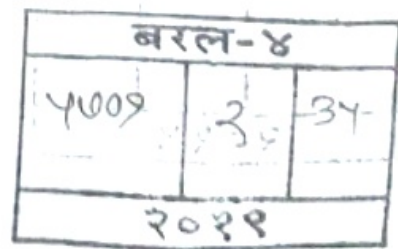 बरल-४
५७०१ २ ३५
२०१९